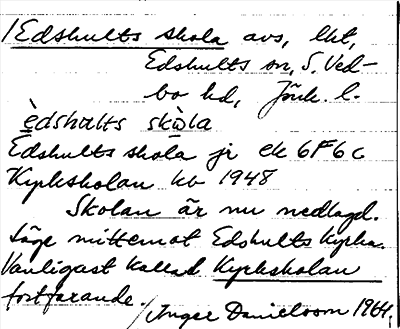 /Edshults skola avs, lht,
Edshults sn, S. Ved-
bo hd, Jönk. l.
èdshults skòla
Edshults skola jr ek 6F6c
Kyrkskolan hb 1948
Skolan är nu nedlagd.
Läge mittemot Edshults kyrka.
Vanligast kallad Kyrkskolan
fortfarande.
/Inger Danielsson 1964.